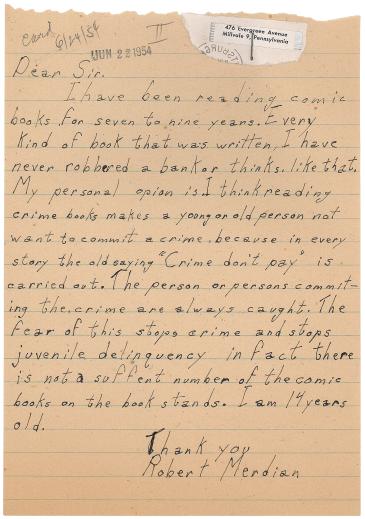 Card 6/24/54
II
JUN 22 1954
476 Evergreen Avenue
Millvale 9, Pennsylvania
Dear Sir.
I have been reading comic
books for seven to nine years. Every
kind of book that was written, I have
never robbered a bank or thinks like that.
My personal opion is I think reading
crime books makes a young or old person not
want to commit a crime, because in every
story the old saying "Crime don't pay" is
carried out. The person or persons commit-
ing the crime are always caught. The
fear of this stops crime and stops
juvenile delinquency in fact there
is not a suffent number of the comic
books on the book stands. I am 14 years
old.
Thank you
Robert Merdian